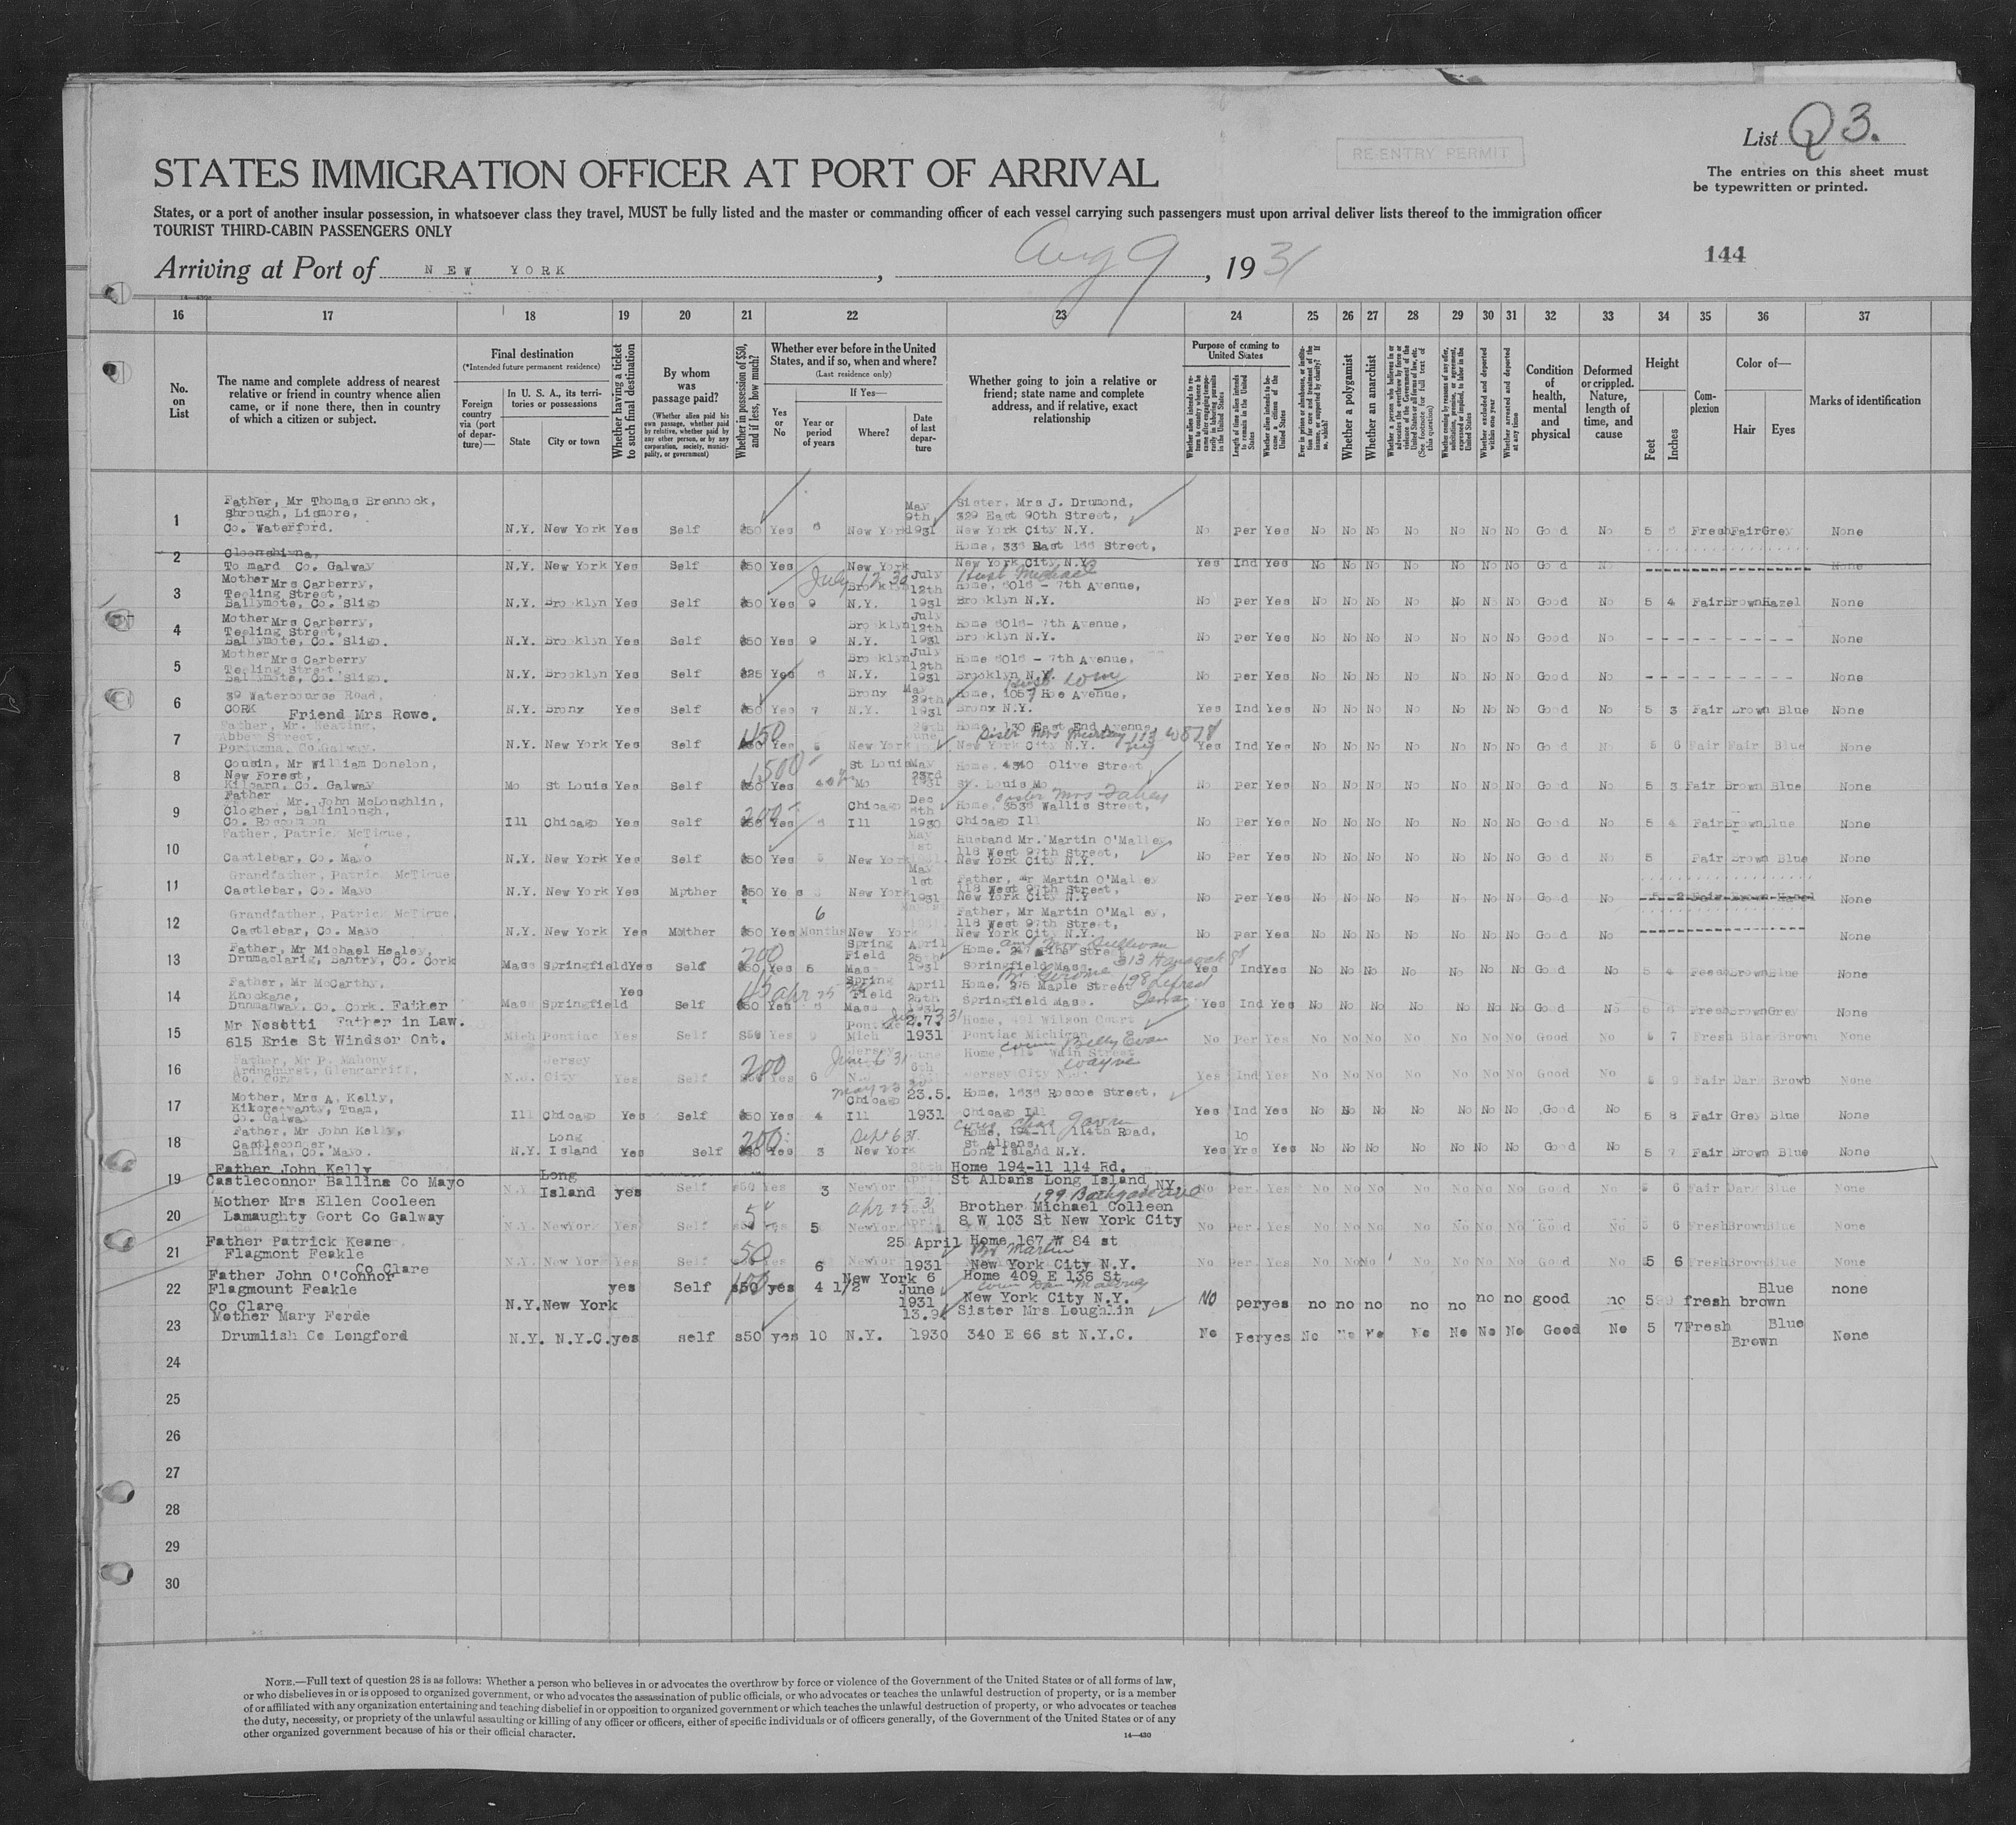 List Q 3.
RE-ENTRY PERMIT
The entries on this sheet must
be typewritten or printed.
STATES IMMIGRATION OFFICER AT PORT OF ARRIVAL
States, or a port of another insular possession, in whatsoever class they travel, MUST be fully listed and the master or commanding officer of each vessel carrying such passengers must upon arrival deliver lists thereof to the immigration officer
TOURIST THIRD-CABIN PASSENGERS ONLY
144
Arriving at Port of NEW YORK, Aug 9, 1931
14-430
16 17 18 19 20 21 22 23 24 25 26 27 28 29 30 31 32 33 34 35 36 37
No. on List
The name and complete address of nearest relative or friend in country whence alien came, or if none there, then in country of which a citizen or subject.
Final destination
(*Intended future permanent residence)
Foreign country via (port of departure)—
In U. S. A., its territories or possessions
State
City or town
Whether having a ticket to such final destination
By whom was passage paid?
(Whether alien paid his own passage, whether paid by relative, whether paid by any other person, or by any corporation, society, municipality, or government)
Whether in possession of $50, and if less, how much?
Whether ever before in the United States, and if so, when and where?
(Last residence only)
Yes or No
If Yes—
Year or period of years
Where?
Date of last departure
Whether going to join a relative or friend; state name and complete address, and if relative, exact relationship
Purpose of coming to United States
Length of time alien intends to remain in the United States
Whether alien intends to become a citizen of the United States
Whether a polygamist
Whether an anarchist
Whether excluded and deported within one year
Whether arrested and deported at any time
Condition of health, mental and physical
Deformed or crippled. Nature, length of time, and cause
Height
Feet
Inches
Complexion
Color of—
Hair
Eyes
Marks of identification
1 Father, Mr Thomas Brennock, Shrough, Lismore, Co. Waterford. N.Y. New York Yes Self $50 Yes New York May 9th, 1931 Sister, Mrs J. Drumond, 329 East 90th Street, New York City N.Y. No Per Yes No No No No No No No Good No 5 6 Fresh Fair Grey None
2 Tomard Co. Galway N.Y. New York Yes Self $50 Yes New York Home, 336 East 166 Street, New York City N.Y. Yes Ind Yes No No No No No No No Good No None
3 Mother Mrs Carberry, Teeling Street, Ballymote, Co. Sligo N.Y. Brooklyn Yes Self $50 Yes 9 July 12 30 Brooklyn N.Y. July 12th 1931 Husb Michael Home, 6016 - 7th Avenue, Brooklyn N.Y. No Per Yes No No No No No No No Good No 5 4 Fair Brown Hazel None
4 Mother Mrs Carberry, Teeling Street, Ballymote, Co. Sligo. N.Y. Brooklyn Yes Self $50 Yes 9 Brooklyn N.Y. July 12th 1931 Home 6016- 7th Avenue, Brooklyn N.Y. No Per Yes No No No No No No No Good No None
5 Mother Mrs Carberry Teeling Street Ballymote, Co. Sligo. N.Y. Brooklyn Yes Self $25 Yes Brooklyn N.Y. July 12th 1931 Home 6016 - 7th Avenue, Brooklyn N.Y. No Per Yes No No No No No No No Good No None
6 39 Watercourse Road, CORK Friend Mrs Rowe. N.Y. Bronx Yes Self $50 Yes 7 Bronx N.Y. May 29th 1931 Home, 1057 Hoe Avenue, Bronx N.Y. Yes Ind Yes No No No No No No No Good No 5 3 Fair Brown Blue None
7 Father, Mr. Keating, Abbey Street, Portumna, Co. Galway. N.Y. New York Yes Self 150 Yes New York June Home, 130 East End Avenue New York City N.Y. Yes Ind Yes No No No No No No No Good No 5 6 Fair Fair Blue None
8 Cousin, Mr William Donelon, New Forest, Kilbarn, Co. Galway Mo St Louis Yes Self 1500 $50 Yes St Louis Mo May 23rd 1931 Home, 4340 Olive Street St. Louis Mo No Per Yes No No No No No No No Good No 5 3 Fair Brown Blue None
9 Father Mr. John McLoughlin, Clogher, Ballinlough, Co. Roscommon Ill Chicago Yes Self 200 Yes Chicago Ill Dec 6th 1930 sister Mrs Fahey Home, 3536 Wallis Street, Chicago Ill No Per Yes No No No No No No No Good No 5 4 Fair Brown Blue None
10 Father, Patrick McTigue, Castlebar, Co. Mayo N.Y. New York Yes Self $50 Yes New York May 1st Husband Mr. Martin O'Malley 118 West 97th Street, New York City N.Y. No Per Yes No No No No No No No Good No 5 Fair Brown Blue None
11 Grandfather, Patrick McTigue Castlebar, Co. Mayo N.Y. New York Yes Mother $50 Yes New York May 1st 1931 Father, Mr Martin O'Malley 118 West 97th Street, New York City N.Y No Per Yes No No No No No No No Good No 5 2 Fair Brown Hazel None
12 Grandfather, Patrick McTigue, Castlebar, Co. Mayo N.Y. New York Yes Mother $50 Yes 6 Months New York Father, Mr Martin O'Malley, 118 West 97th Street, New York City N.Y. No Per Yes No No No No No No No Good No None
13 Father, Mr Michael Healey, Drumaclarig, Bantry, Co. Cork Mass Springfield Yes Self 200 $50 Yes 5 Spring Field Mass April 25th 1931 aunt Mrs Sullivan 313 Home. 247 Pine Street Springfield Mass Yes Ind Yes No No No No No No No Good No 5 4 Fresh Brown Blue None
14 Father, Mr McCarthy, Knockane, Dunmanway, Co. Cork. Father Mass Springfield Yes Self $50 Yes Spring Field Mass April 25th 1931 Home, 275 Maple Street Springfield Mass. Yes Ind Yes No No No No No No No Good No Fresh Brown Grey None
15 Mr Nosotti Father in Law. 615 Erie St Windsor Ont. Mich Pontiac Yes Self $50 Yes 9 Pontiac Mich 2.7. 1931 Home, Wilson Court Pontiac Michigan No Per Yes No No No No No No No Good No 7 Fresh Brown None
16 Father, Mr P. Mahony Ardnahurst, Glengarriff, Co. Cork N.J. Jersey City Yes Self 200 Yes 6 June 6 31 Jersey N.J. June 6th cousin Billy Evan Wayne Home, Street Jersey City N.J. Yes Ind Yes No No No No No No No Good No 9 Fair Dark Brown None
17 Mother, Mrs A. Kelly, Tuam, Co. Galway Ill Chicago Yes Self $50 Yes 4 May 23 Chicago Ill 23.5. 1931 Home, 1636 Roscoe Street, Chicago Ill Yes Ind Yes No No No No No No No Good No 5 8 Fair Grey Blue None
18 Father, Mr John Kelly, Castleconner, Ballina, Co. Mayo. N.Y. Long Island Yes Self 200 Yes 3 Sept 6 New York Home, 194-11, 114th Road, St Albans, Long Island N.Y. Yes 10 Yrs Yes No No No No No No No Good No 5 7 Fair Brown Blue None
19 Father John Kelly Castleconnor Ballina Co Mayo N.Y. Long Island yes Self $50 Yes 3 New York Home 194-11 114 Rd. St Albans Long Island NY. No Per. Yes No No No No No No No Good No 5 6 Fair Dark Blue None
20 Mother Mrs Ellen Cooleen Lamaughty Gort Co Galway N.Y. New York Yes Self Yes 5 New York Apr 25 31 199 Bathgate ave Brother Michael Colleen 8 W 103 St New York City No Per. Yes No No No No No No No Good No 5 6 Fresh Brown Blue None
21 Father Patrick Keane Flagmont Feakle Co Clare N.Y. New York Yes Self 50 Yes 6 New York 25 April 1931 Home 167 W 84 st Br Martin New York City N.Y. No Per. Yes No No No No No No No Good No 5 6 Fresh Brown Blue None
22 Father John O'Connor Flagmount Feakle Co Clare N.Y. New York yes Self $50 yes 4 1/2 New York 6 June 1931 Home 409 E 136 St New York City N.Y. NO per yes no no no no no no no good no 5 fresh brown Blue none
23 Mother Mary Ferde Drumlish Co Longford N.Y. N.Y.C. yes self $50 yes 10 N.Y. 13.9. 1930 Sister Mrs Loughlin 340 E 66 st N.Y.C. No Per yes No No No No No No No Good No 5 7 Fresh Brown Blue None
24
25
26
27
28
29
30
NOTE.—Full text of question 28 is as follows: Whether a person who believes in or advocates the overthrow by force or violence of the Government of the United States or of all forms of law,
or who disbelieves in or is opposed to organized government, or who advocates the assassination of public officials, or who advocates or teaches the unlawful destruction of property, or is a member
of or affiliated with any organization entertaining and teaching disbelief in or opposition to organized government or which teaches the unlawful destruction of property, or who advocates or teaches
the duty, necessity, or propriety of the unlawful assaulting or killing of any officer or officers, either of specific individuals or of officers generally, of the Government of the United States or of any
other organized government because of his or their official character.
14—430